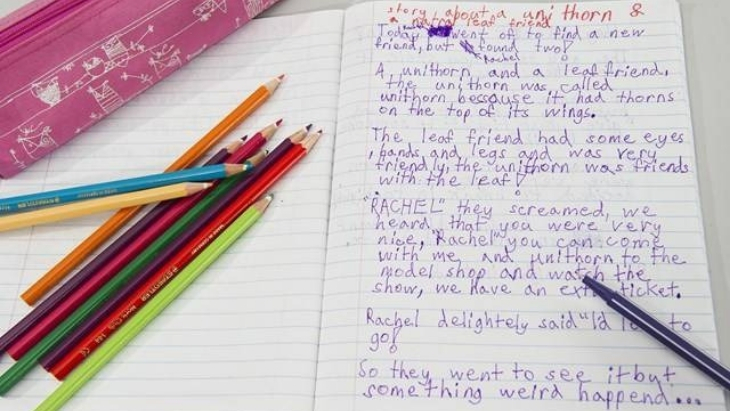 story, about a uni thorn &
a natral leaf friend
Today went of to find a new
friend, but found two!
Rachel
A unithorn and a leaf friend,
the unithorn was called
unithorn bescause it had thorns
on the top of its wings.
The leaf friend had some eyes
, hands and legs and was very
friendly, the unithorn was friends
with the leaf!
"RACHEL" they screamed, we
heard that you were very
nice, "Rachel" you can come
with me, and unithorn to the
model shop and watch the
show, we have an extra ticket.
Rachel delightely said "Id to
go!
So they went to see it but
something weird happend...